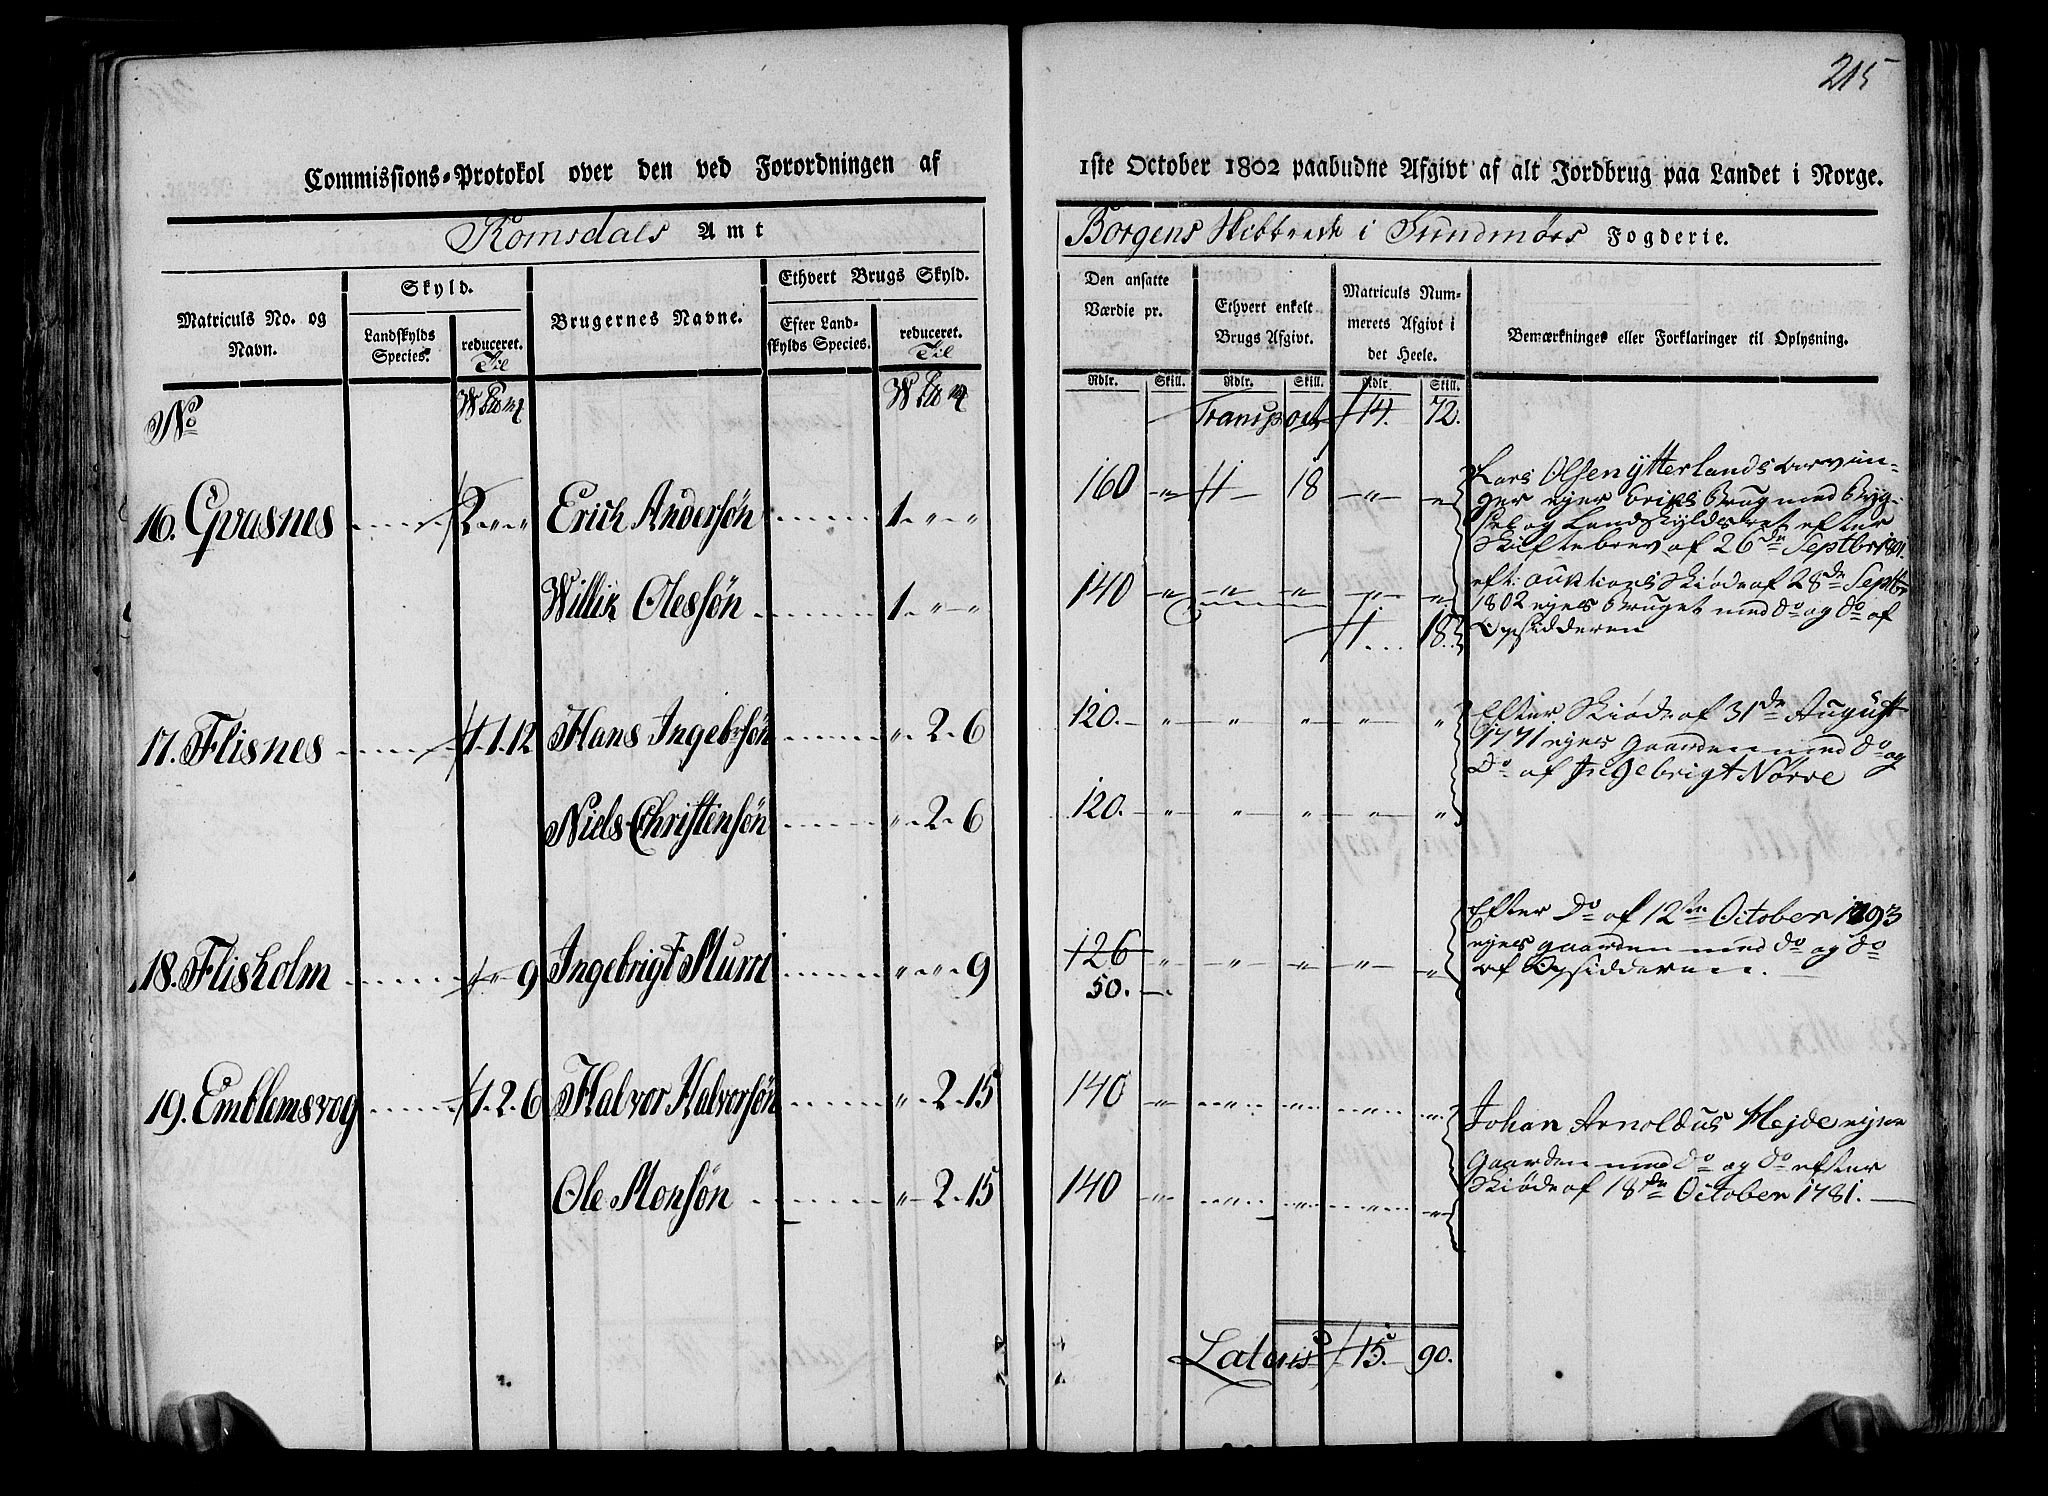 215
Commissions-Protokol over den ved Forordningen af
1ste October 1802 paabudne Afgivt af alt Jordbrug paa Landet i Norge.
Romsdals Amt
Borgens Skibbrede i Sundmörs Fogderie.
Matriculs No. og Navn.
Skyld.
Landskylds Species.
reduceret. Til
Brugernes Navne.
Ethvert Brugs Skyld.
Efter Landskylds Species.
reduceret. Til
Den ansatte Værdie pr.
Ethvert enkelt Brugs Afgivt.
Matriculs Nummerets Afgivt i det Heele.
Bemærkninger eller Forklaringer til Oplysning.
Rdlr. Skill. Rdlr. Skill. Rdlr. Skill.
No W W
Transport 14. 72.
16. Gvasnes 2 " " Erich Andersön 1 " " 160 " 1 18 " "
Lars Olsen Ytterlands Arvin-
ger ejer Erichs Brug med Byg-
sel og Landskyldsret efter
Skiftebrev af 26de Septbr 1801.
Willik Olessön 1 " " 140 " " " " "
1 18.
eft: auktions Skiöde af 28de Septbr
1802 ejes Bruget med do og do af
Opsidderen
17. Flisnes 1. 1. 12 Hans Ingebrsön " 2 6 120. " " " " "
Efter Skiöde af 31de August
1771 ejes Gaarden med do og
do af Ingebrigt Nörve
Niels Christensön " 2 6 120. " " " " "
18. Flisholm " 9 Ingebrigt " " 9 126 " " " " "
50.
Efter do af 12te October 1793
ejes gaarden med do og do
af Opsidderen.
19. Emblemsvog 1. 2. 6 Halvor Halvorsön " 2 15 140 " " " " "
Johan Arnoldus Hejde ejer
Ole Monsön " 2 15 140 " " " " "
Gaarden med do og do efter
Skiöde af 18de October 1781.
Latus 15. 90.